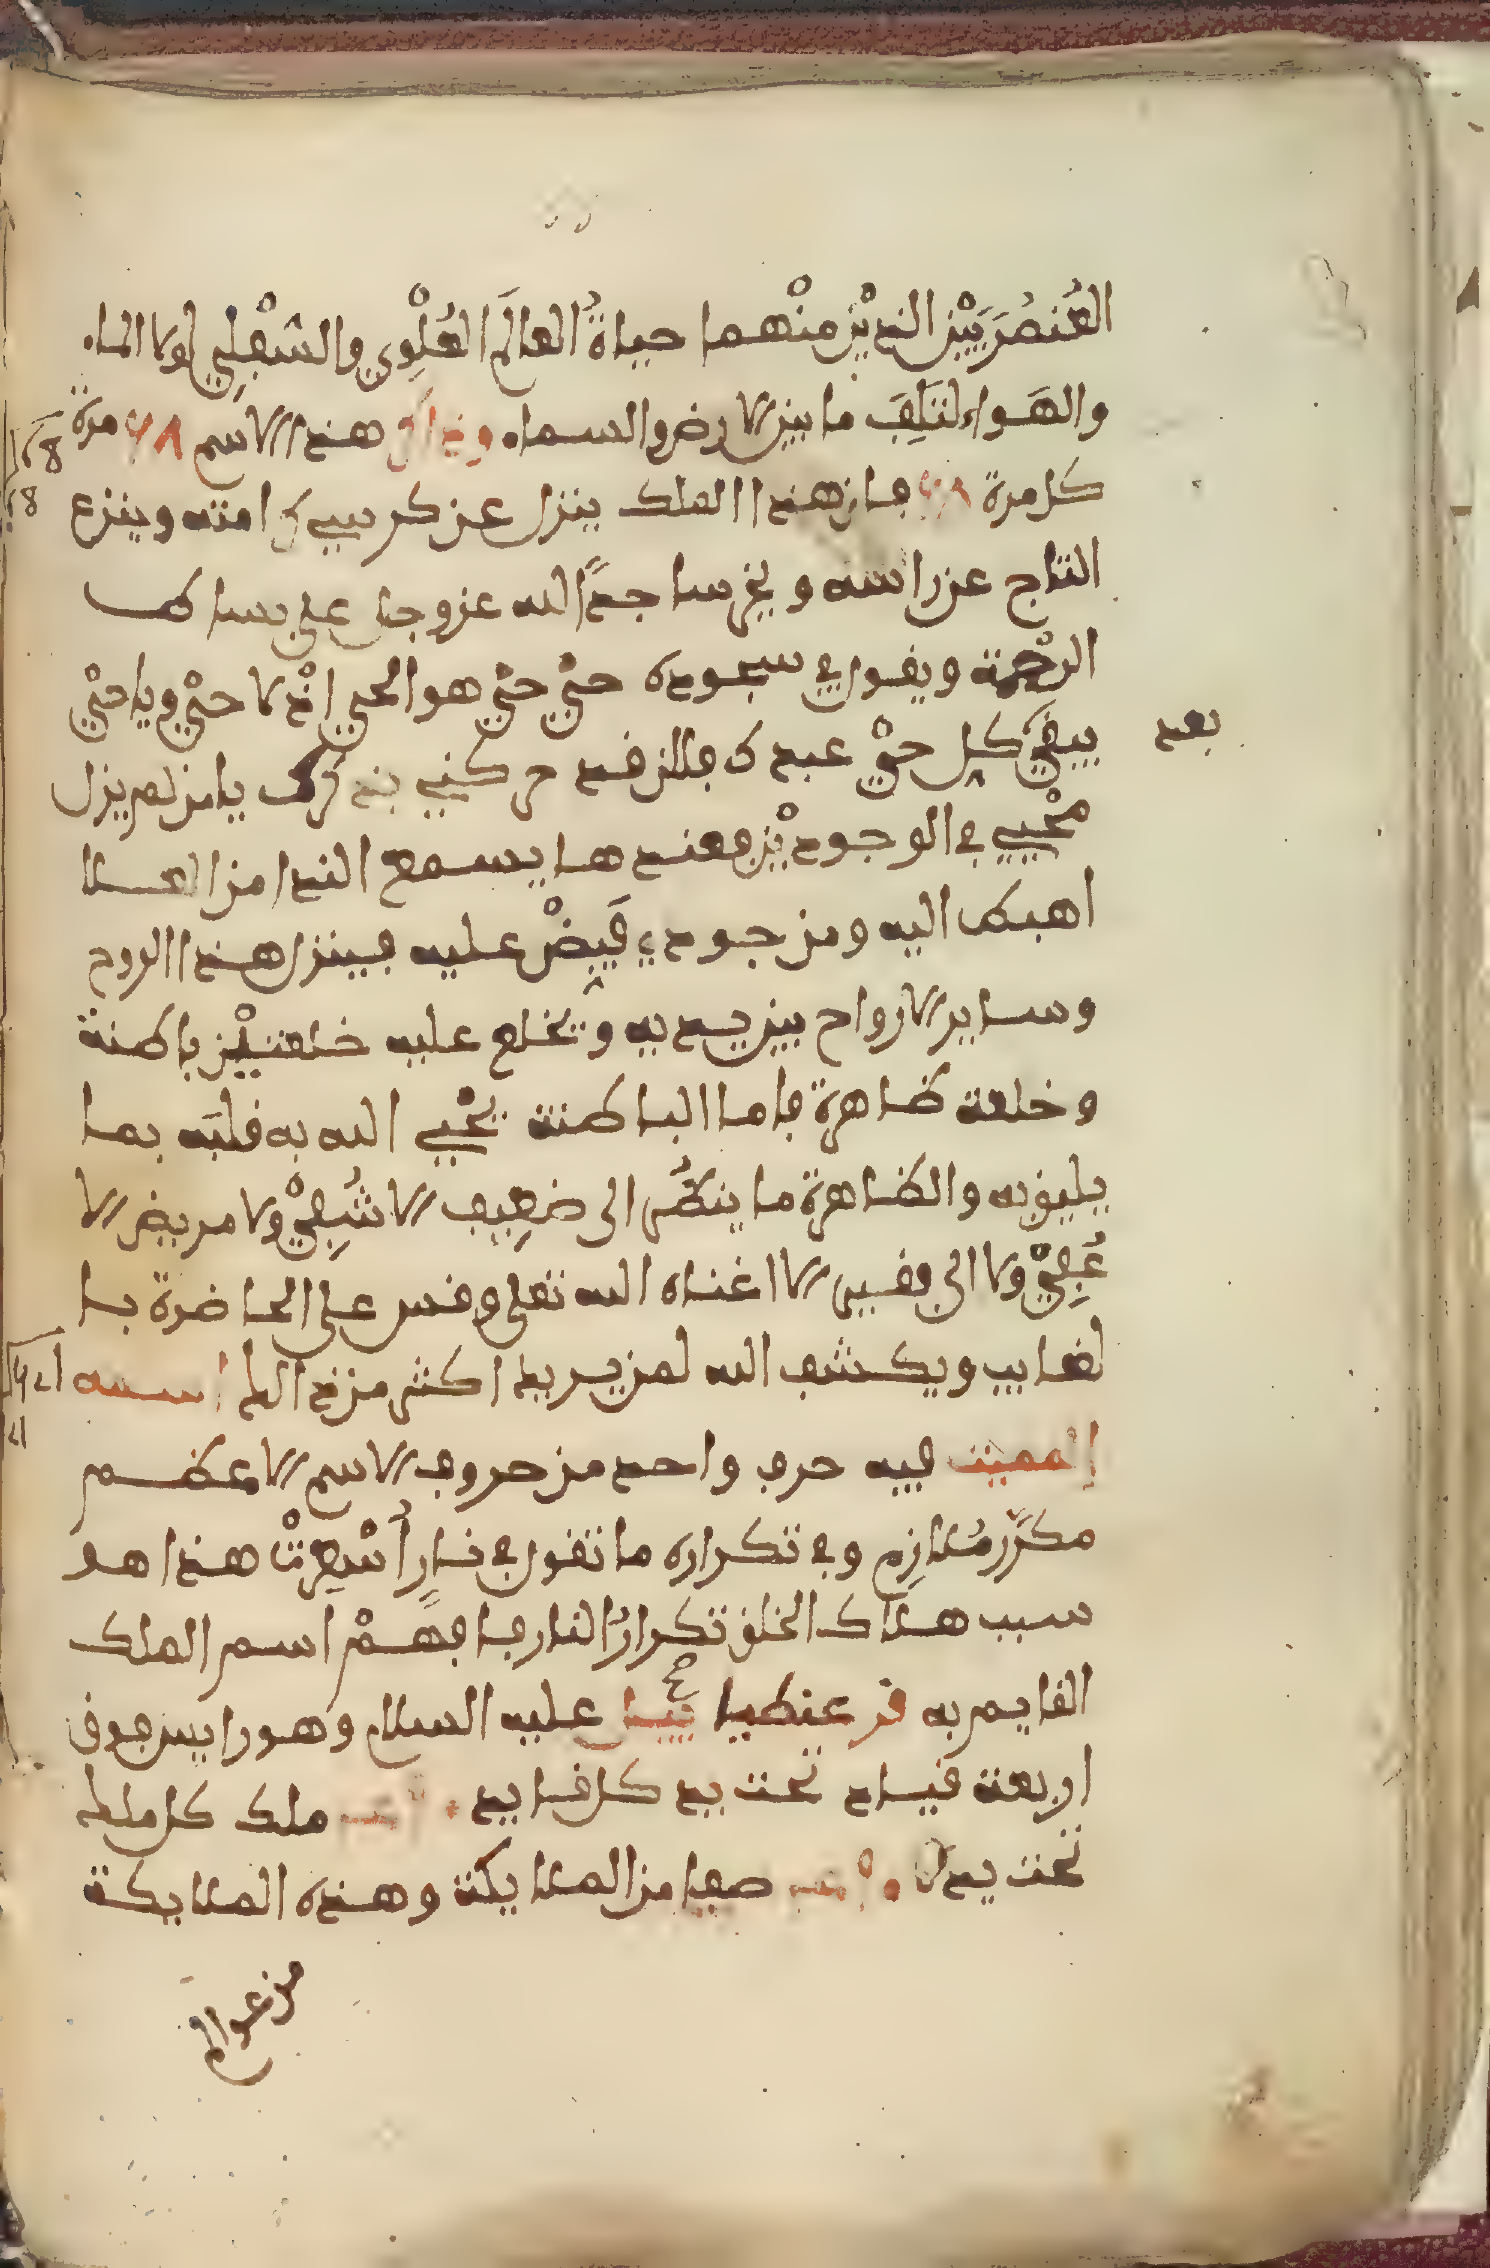 العُنصُرَيْن الذين منْهما حياةُ العالَم العُلْوِي والسّفْلِي لولا الماء
والهَواء لتَلِفَ ما بين الارض والسماء وذاكر هذا الاسم ٦٨ مرة
كل مرة ٦٨ فان هذا الملك ينزل عن كرسي كرامته وينزع
التاج عن راسه ويخر ساجدًا لله عز وجل على بساط
الرحْمة ويقول في سجوده حيّ حيّ هو الحي اذْ لا حيّ ويا حيّ
يبقى كل حيّ عبدك فلان قد حركني بذكرك يا من لم يزل
بعد
محْيي في الوجودين فعندها يسمع الندا من العلا
اهبط اليه ومن جودي فَيضْ عليه فينزل هذا الروح
وساير الارواح بين يديه ويخلع عليه خلعتيْن باطنة
وخلعة ظاهرة فاما الباطنة يحْيي الله به قلبَه بما
يليق به والظاهرة ما ينظُر الى ضعِيف الا شُفِيْ ولا مريض الا
عُفِيْ ولا الى فقير الا اغناه الله تعلى وقس على الحاضرة با
لغايب ويكشف الله لمن يريد اكثر من ذالك اسمه
المميت فيه حرف واحد من حروف الاسم الاعظم
مكرَّر مُلازِم وفي تكراره ما تقول في نارٍ أُسْعِرتْ هذا هو
سبب هلاك الخلق تكرارُ النار فافهمْ اسم الملك
القايم به عليه السلام وهو راييس فوق
اربعة قياد تحت يد كل قايد ملك كل ملك
تحت يده صفا من الملايكة وهذه الملايكة
من عوالم